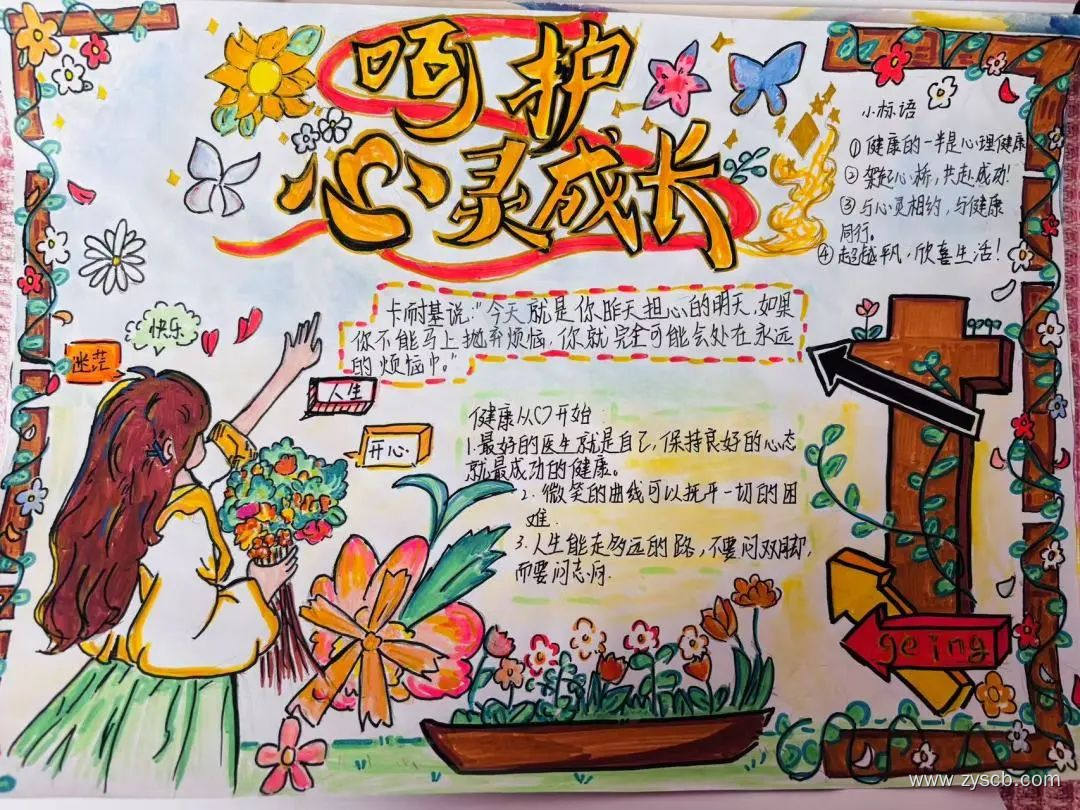 呵护
心灵成长
小标语
①健康的一半是心理健康
②架起心桥,共赴成功!
③与心灵相约,与健康
同行。
④超越平凡,欣喜生活!
卡耐基说:"今天就是你昨天担心的明天,如果
你不能马上抛弃烦恼,你就完全可能会处在永远
的烦恼中。"
快乐
迷茫
人生
开心
健康从心开始
1.最好的医生就是自己,保持良好的心态
就最成功的健康。
2.微笑的曲线可以抚开一切的困
难.
3.人生能走多远的路,不要问双脚,
而要问志向.
geing
www.zyscb.com